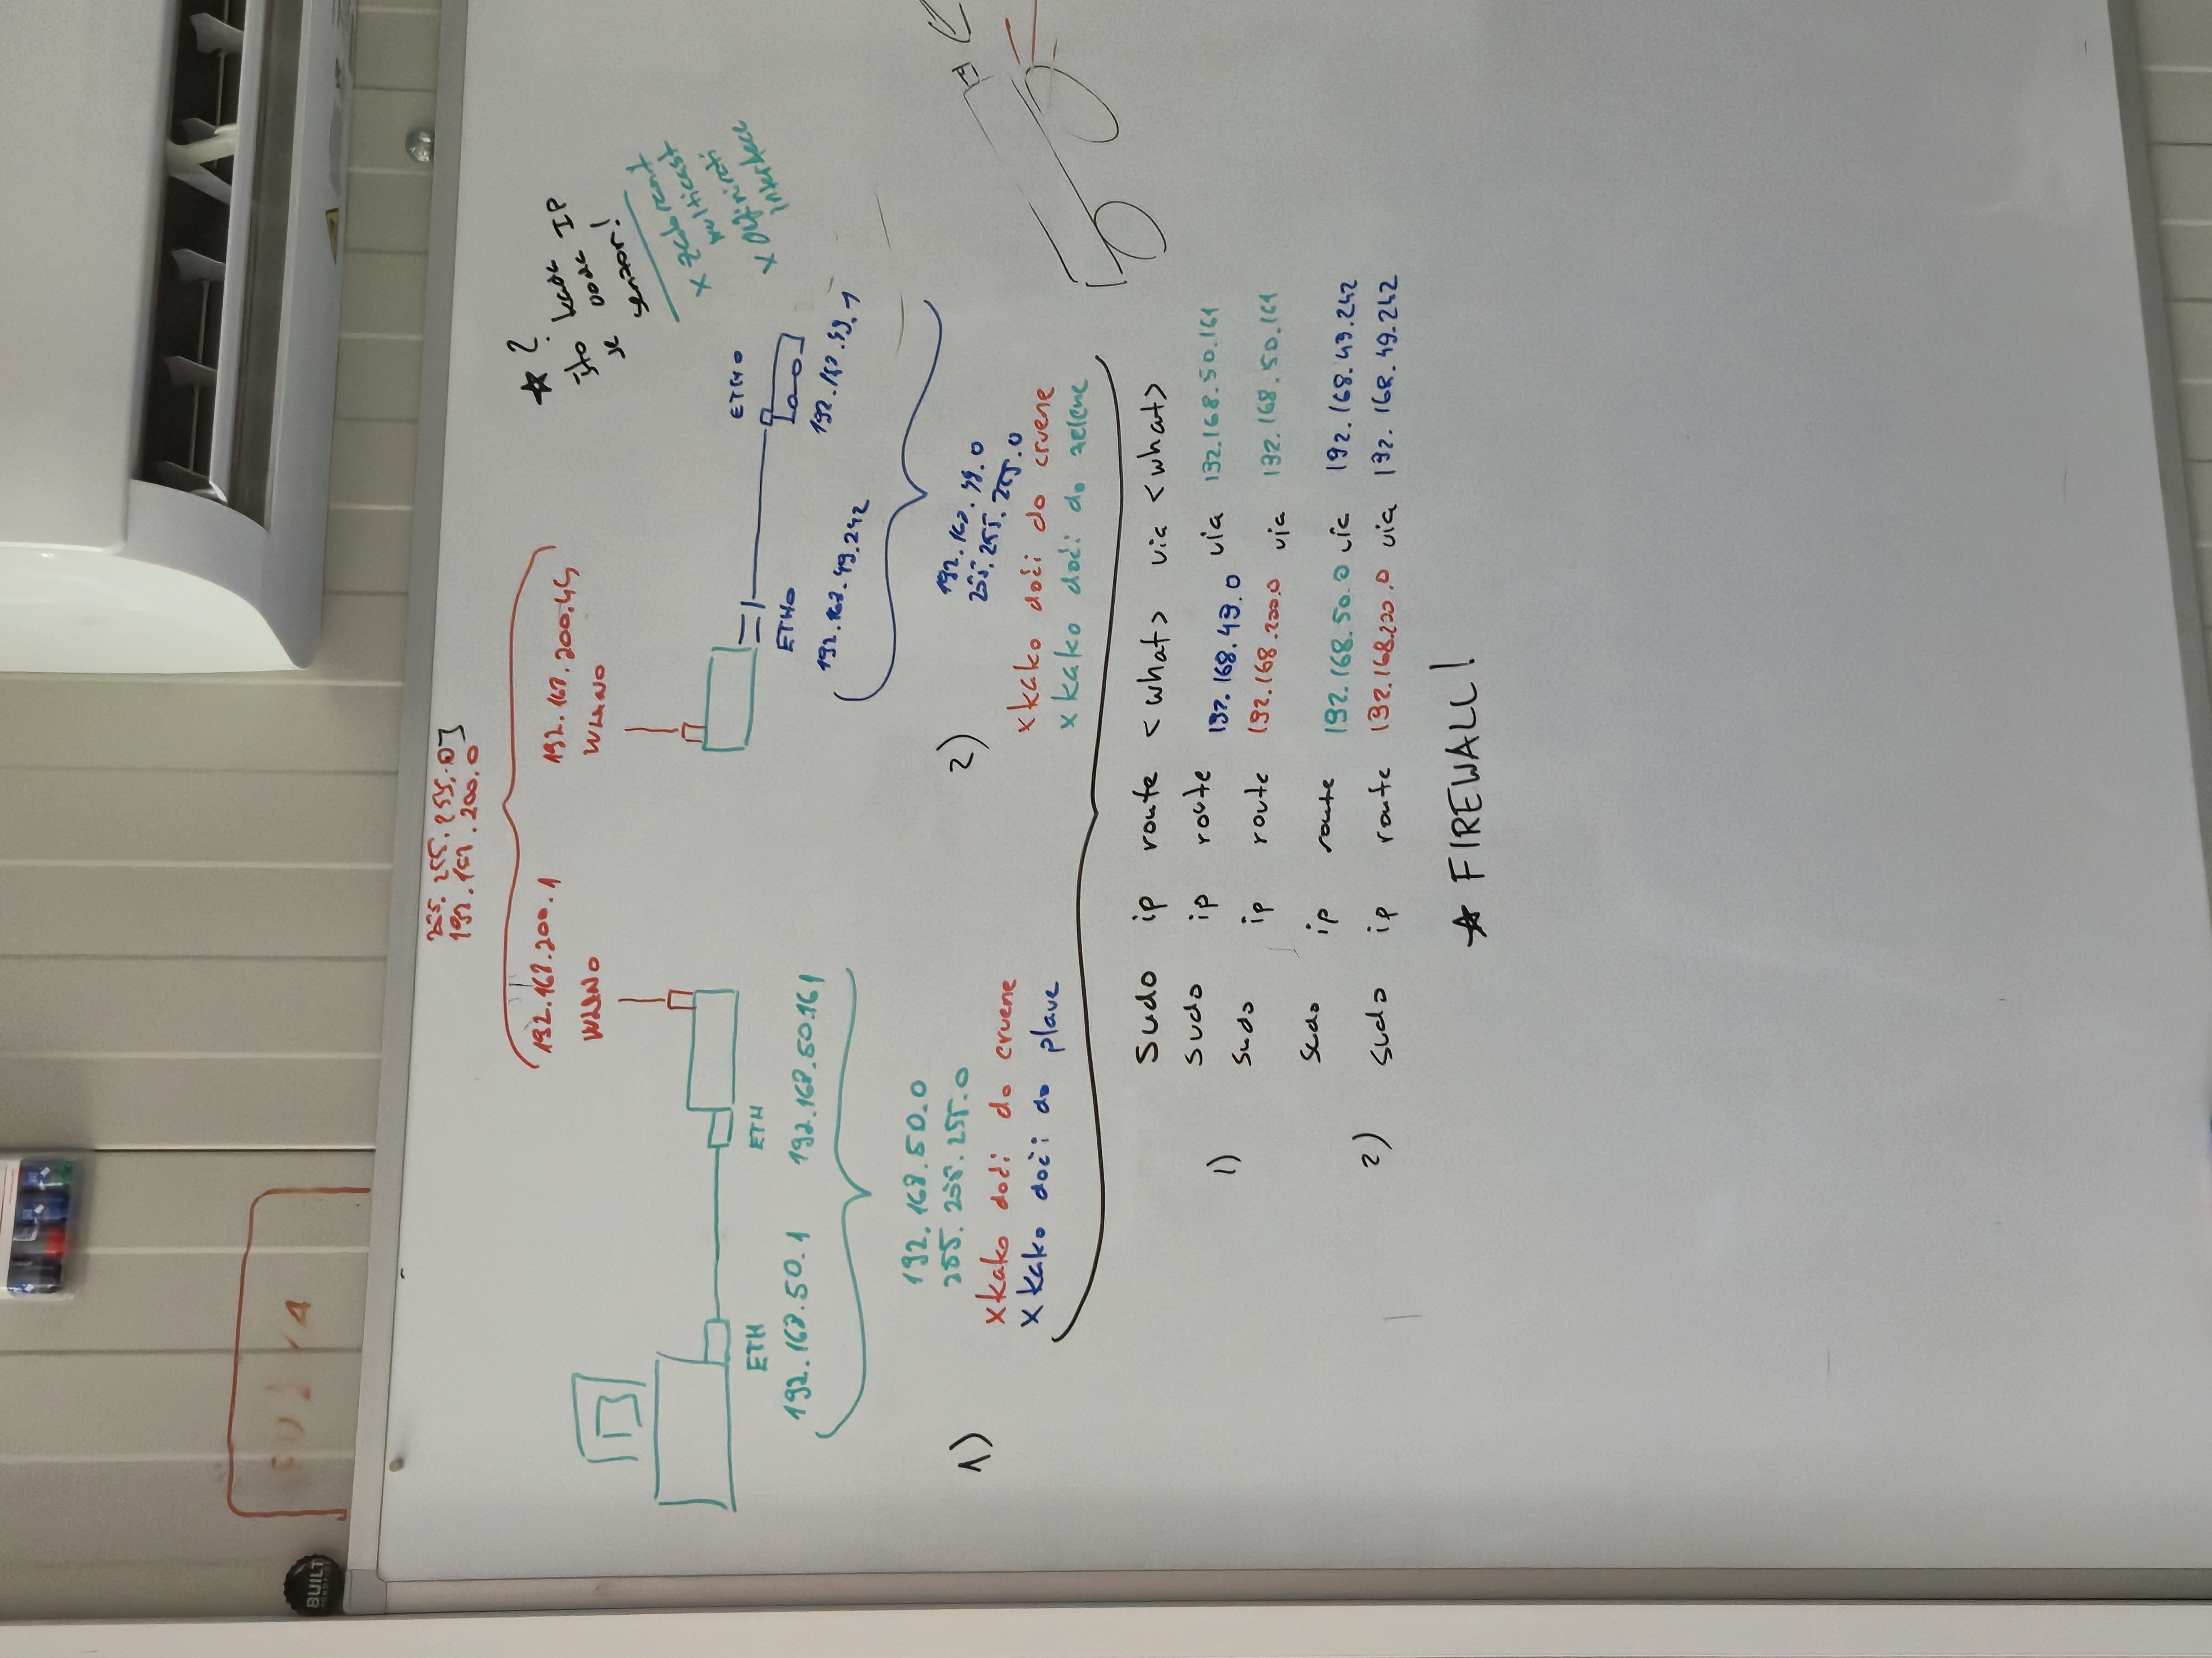 BUILT
255.255.255.0
192.168.200.0
192.168.200.1
192.168.200.45
WLAN0
WLAN0
★ ?
što kada
je voda IP
senzor!
x zabranit
multicast
x Definirati
interface
ETH
ETH
192.168.50.1
192.168.50.161
ETH0
ETH0
192.168.49.242
192.168.49.1
192.168.50.0
255.255.255.0
1)
x kako doći do crvene
x kako doći do plave
2)
192.168.49.0
255.255.255.0
x kako doći do crvene
x kako doći do zelene
sudo ip route <what> via <what>
1)
sudo ip route 192.168.49.0 via 192.168.50.161
sudo ip route 192.168.200.0 via 192.168.50.161
2)
sudo ip route 192.168.50.0 via 192.168.49.242
sudo ip route 192.168.200.0 via 192.168.49.242
★ FIREWALL!